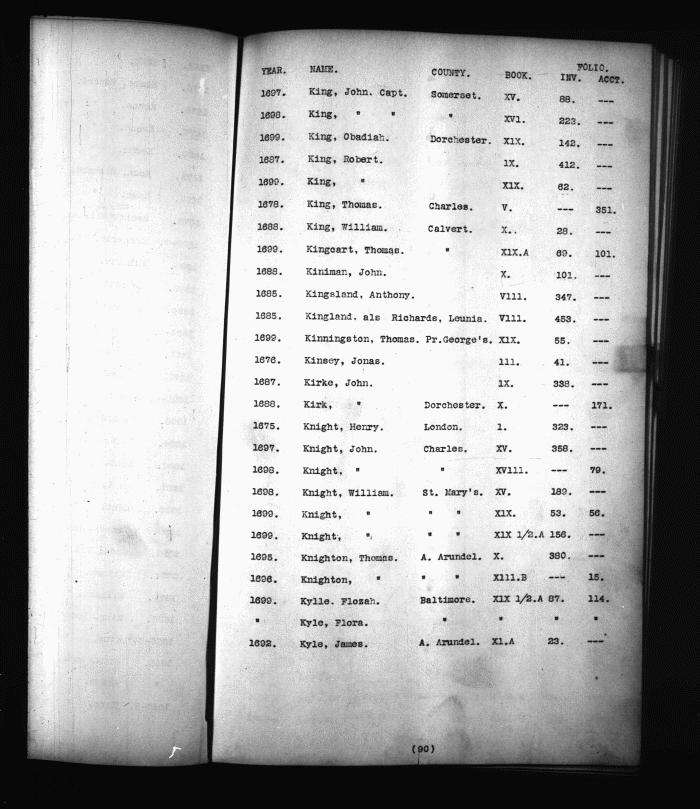 FOLIO.
YEAR. NAME. COUNTY. BOOK. INV. ACCT.
1697. King, John. Capt. Somerset. XV. 88. ---
1698. King, " " " XV1. 223. ---
1699. King, Obadiah. Dorchester. X1X. 142. ---
1687. King, Robert. 1X. 412. ---
1699. King, " X1X. 62. ---
1678. King, Thomas. Charles. V. --- 351.
1688. King, William. Calvert. X.. 28. ---
1699. Kingcart, Thomas. " X1X.A 69. 101.
1688. Kiniman, John. X. 101. ---
1685. Kingsland, Anthony. V111. 347. ---
1685. Kingland. als Richards, Leunia. V111. 453. ---
1699. Kinningston, Thomas. Pr.George's. X1X. 55. ---
1676. Kinsey, Jonas. 111. 41. ---
1687. Kirke, John. 1X. 338. ---
1688. Kirk, " Dorchester. X. --- 171.
1675. Knight, Henry. London. 1. 323. ---
1697. Knight, John. Charles. XV. 358. ---
1698. Knight, " " XV111. --- 79.
1698. Knight, William. St. Mary's. XV. 189. ---
1699. Knight, " " " X1X. 53. 56.
1699. Knight, " " " X1X 1/2.A 156. ---
1695. Knighton, Thomas. A. Arundel. X. 380. ---
1696. Knighton, " " " X111.B --- 15.
1699. Kylle. Flozah. Baltimore. X1X 1/2.A 87. 114.
" Kyle, Flora. " " " "
1692. Kyle, James. A. Arundel. X1.A 23. ---
(90)